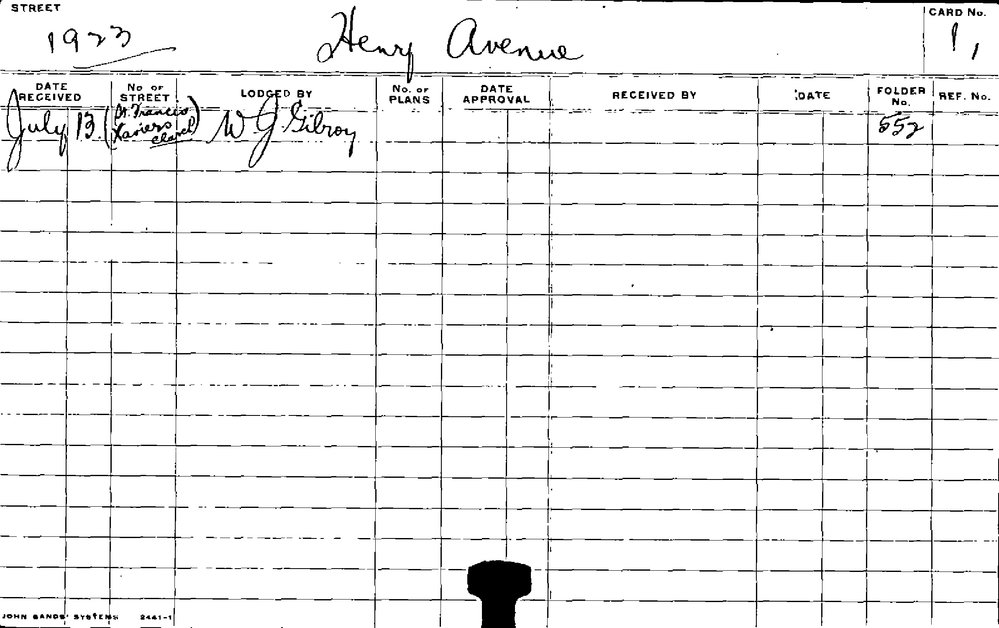 STREET
1923 Henry Avenue
CARD No.
1,
DATE RECEIVED No OF STREET LODGED BY No. OF PLANS DATE APPROVAL RECEIVED BY DATE FOLDER No. REF. No.
July 13. (St. Francis Xaviers W J Gilroy 552
JOHN SANDS' SYSTEMS 2441-1